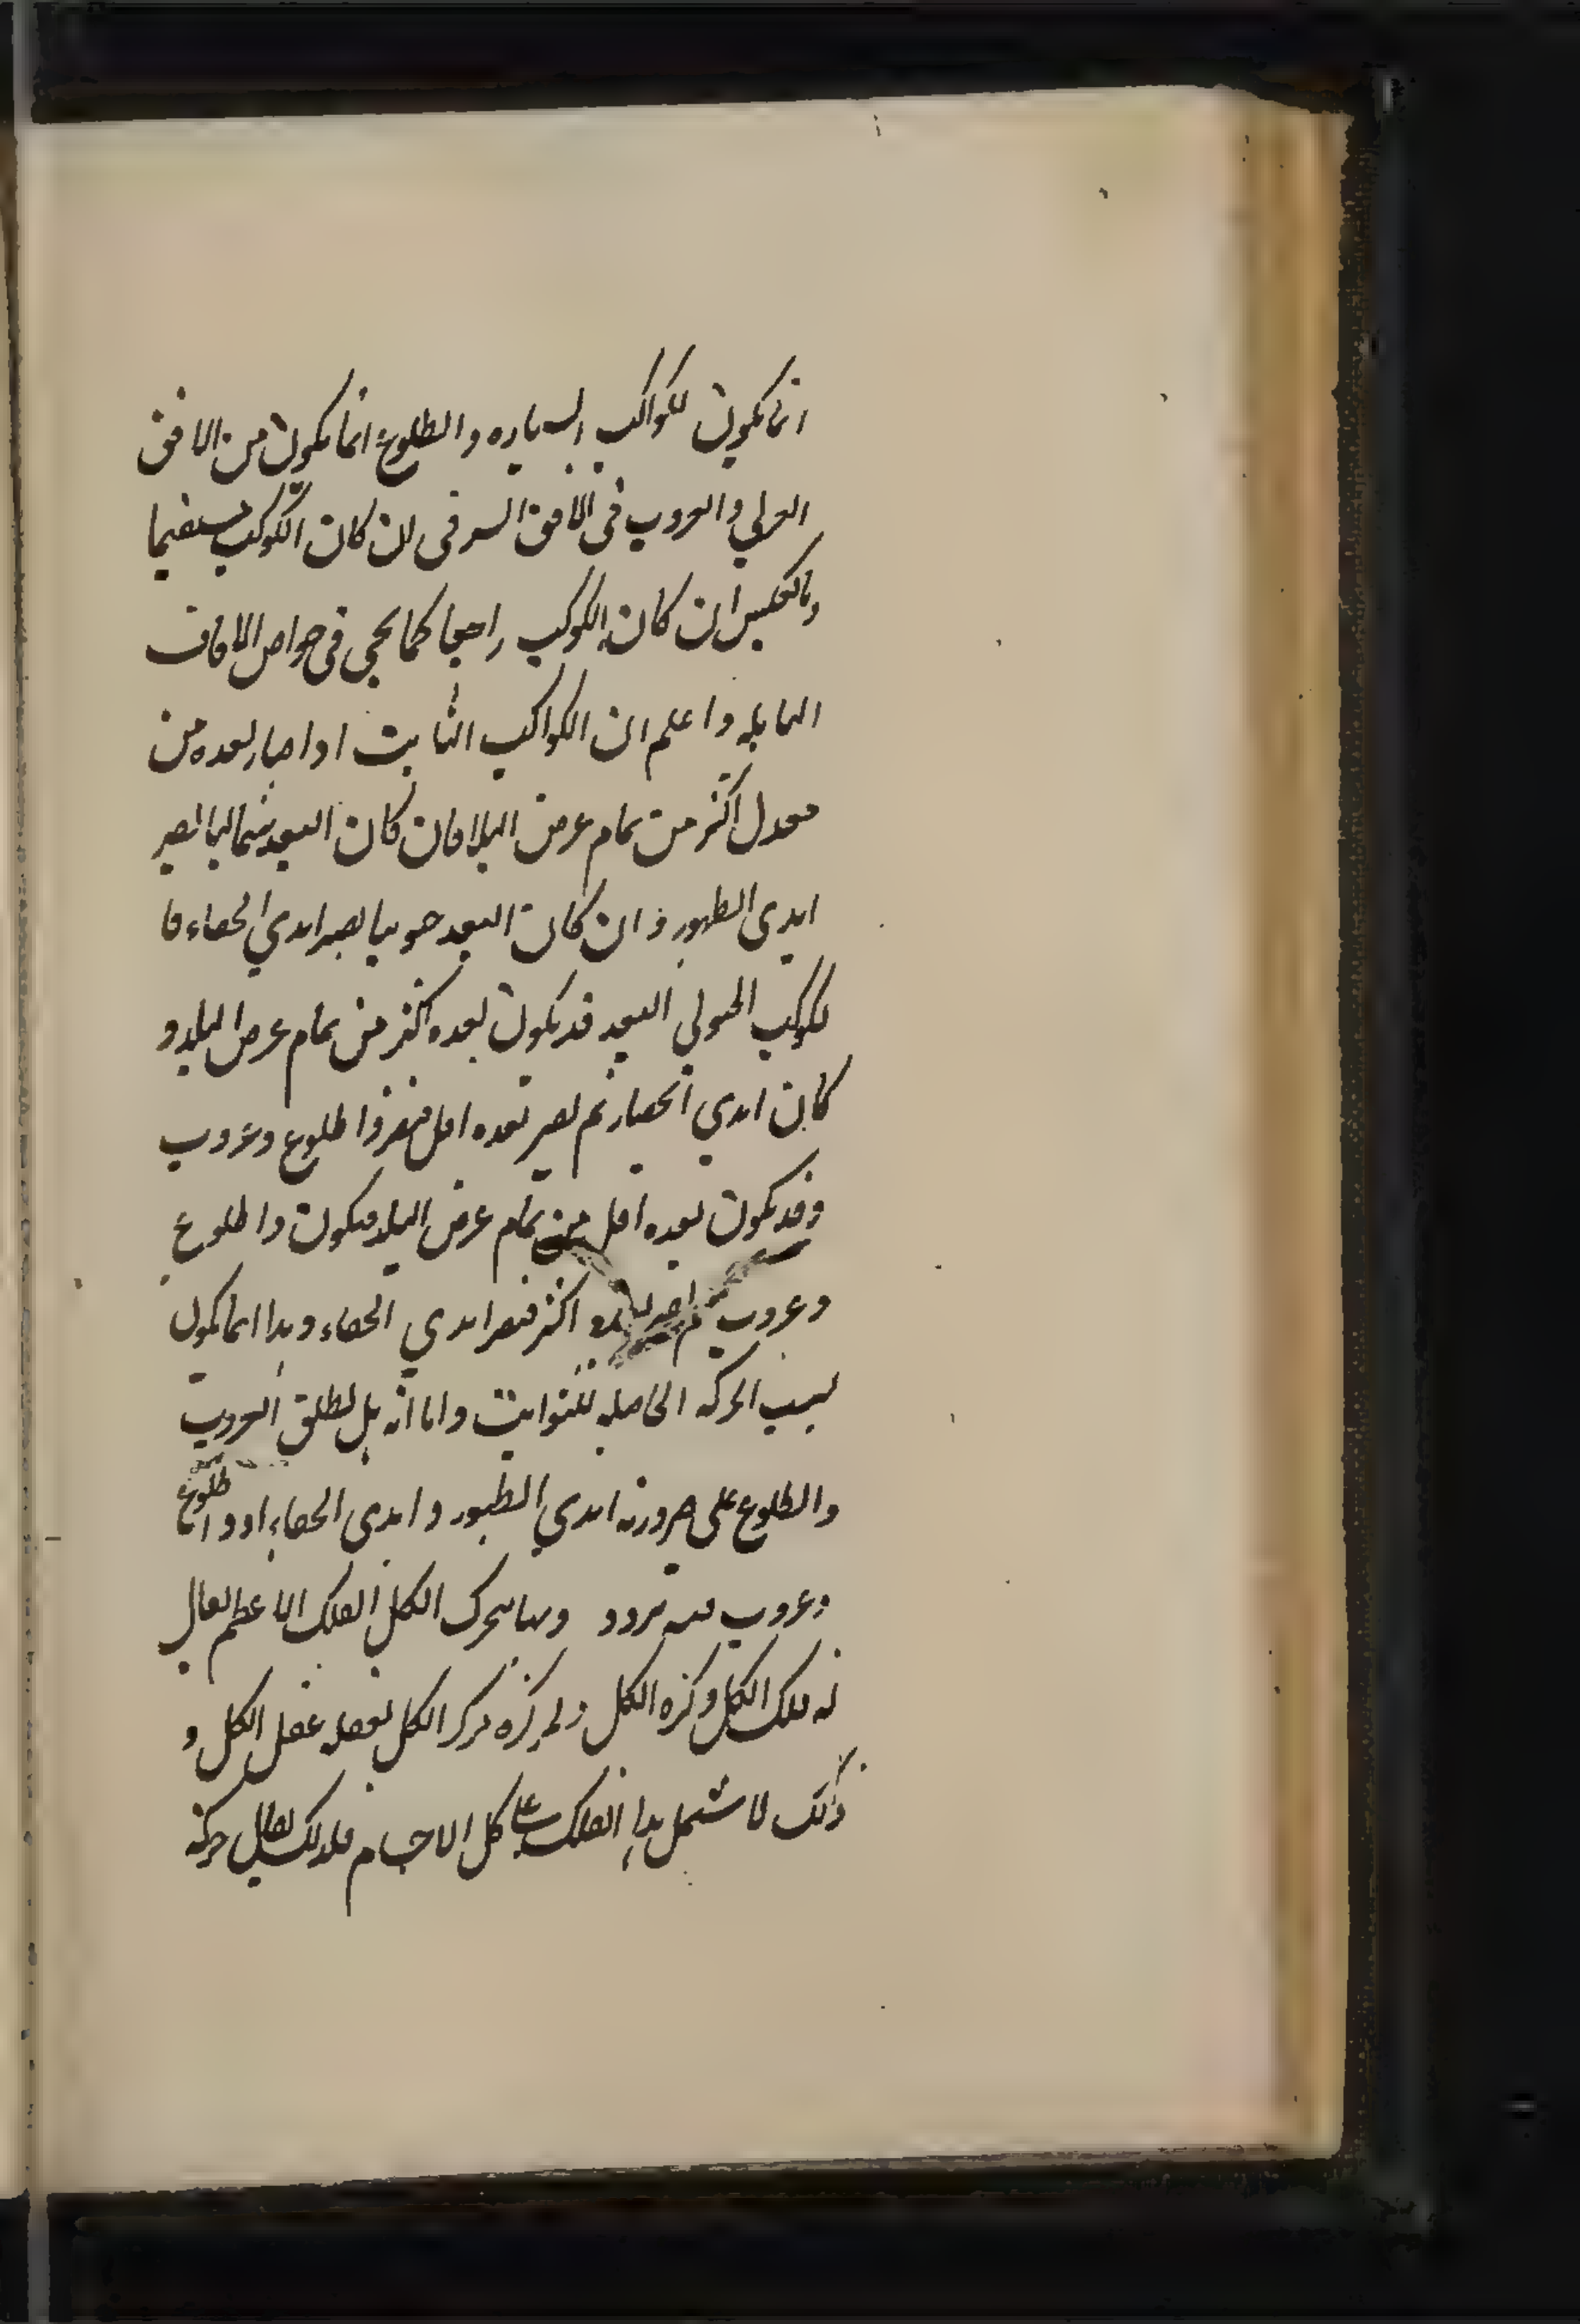 انما يكون للكواكب السياره والطلوع انما يكون من الافق
الغربي والغروب في الافق الشرقي ان كان الكوكب مستقيما
وبالعكس ان كان الكوكب راجعا كما يجي في خواص الافاق
المايله واعلم ان الكواكب الثابت اذا صار بعده من
معدل اكثر من تمام عرض البلد فان كان البعد شماليا يصير
ابدي الظهور وان كان البعد جنوبيا يصير ابدي الخفاء فا
لكوكب الجنوبي البعد قد يكون بعده اكثر من تمام عرض البلد و
كان ابدي الخفاء ثم يصير بعده اقل فيصير ذا طلوع وغروب
وقد يكون بعده اقل من تمام عرض البلد فيكون ذا طلوع
وغروب ثم يصير بعده اكثر فيصير ابدي الخفاء وهذا انما يكون
بسبب الحركه الحاصله للثوابت واما انه هل يطلق الغروب
والطلوع على صيرورته ابدي الظهور وابدي الخفاء او ذا طلوع
وغروب ففيه تردد ومنها تحرك الكل الفلك الاعظم يقال
له فلك الكل وكره الكل ومركزه مركز الكل بعقله عقل الكل و
ذلك لاشتمل هذا الفلك على كل الاجسام فلذلك يقال حركته